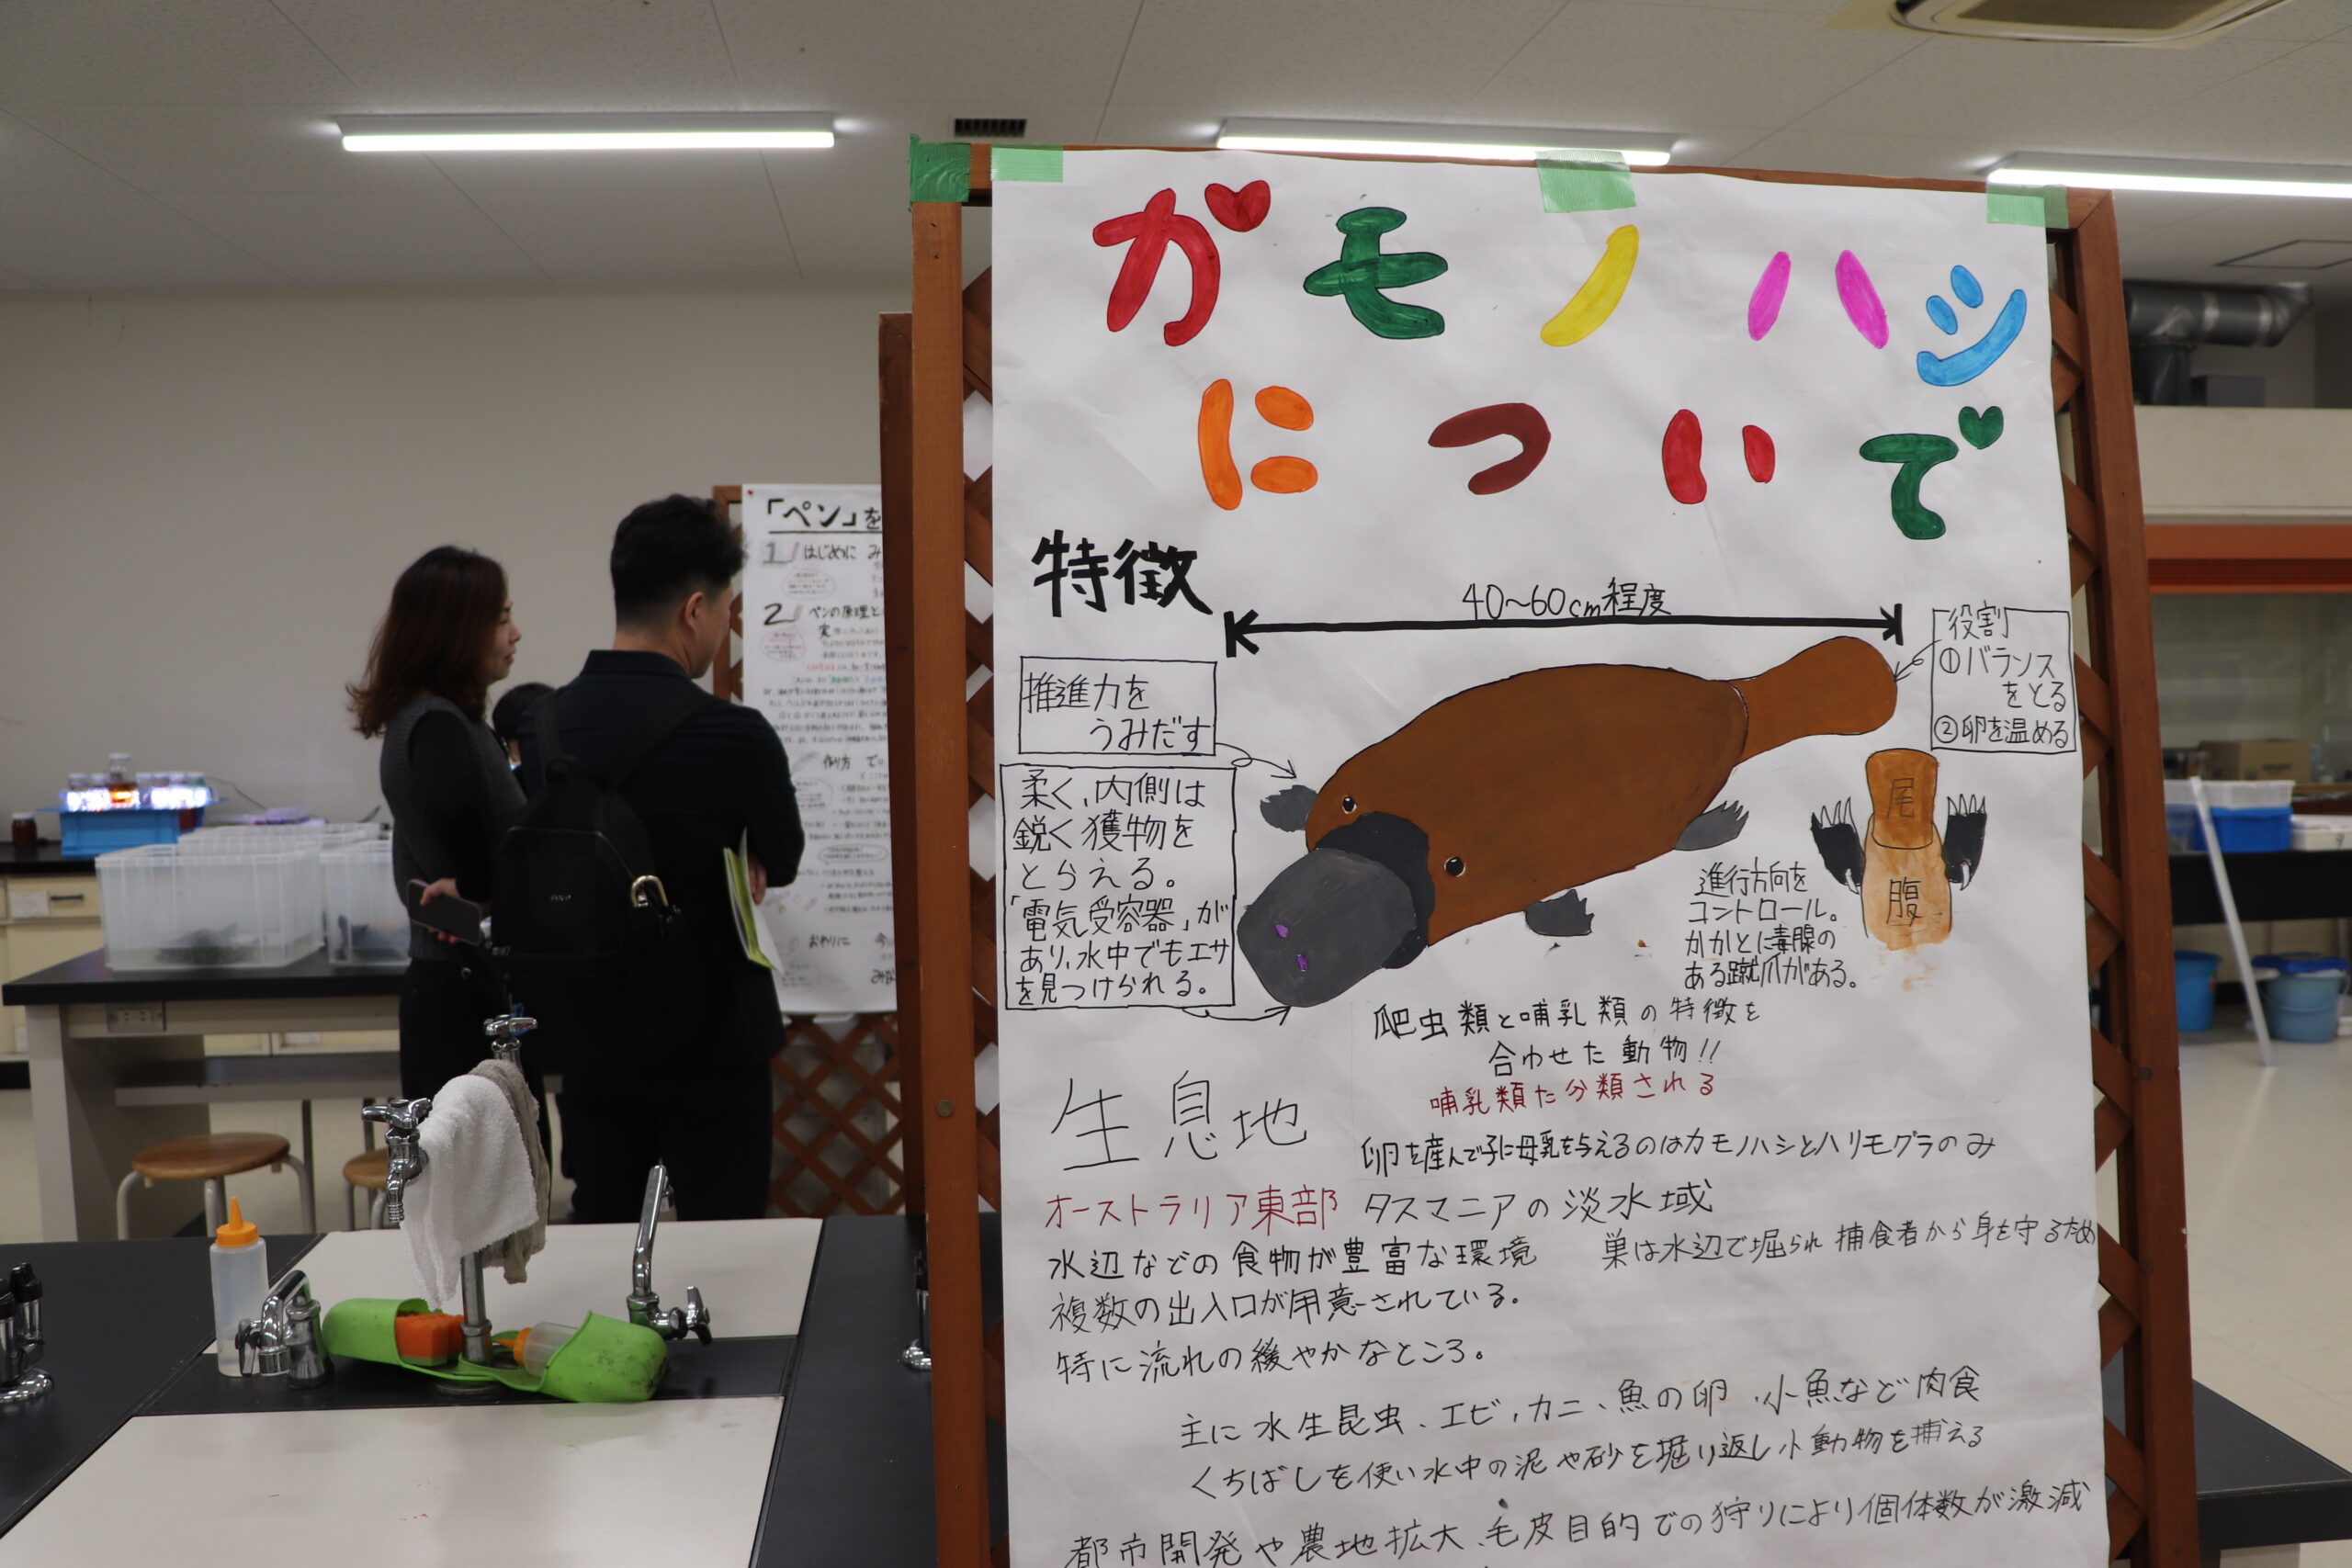 ガモノハシ
についで
特徴
40~60cm程度
役割
①バランス
をとる
②卵を温める
推進力を
うみだす
柔く、内側は
鋭く獲物を
とらえる。
「電気受容器」が
あり、水中でもエサ
を見つけられる。
尾
腹
進行方向を
コントロール。
かかとに毒腺の
ある蹴爪がある。
爬虫類と哺乳類の特徴を
合わせた動物!!
哺乳類た分類される
生息地
卵を産んで子に母乳を与えるのはカモノハシとハリモグラのみ
オーストラリア東部 タスマニアの淡水域
水辺などの食物が豊富な環境 巣は水辺で堀られ捕食者から身を守るため
複数の出入口が用意されている。
特に流れの緩やかなところ。
主に水生昆虫、エビ、カニ、魚の卵、小魚など肉食
くちばしを使い水中の泥や砂を堀り返し小動物を捕える
都市開発や農地拡大、毛皮目的での狩りにより個体数が激減
「ペン」を
1 はじめに
2 ペンの原理と
作り方
おわりに